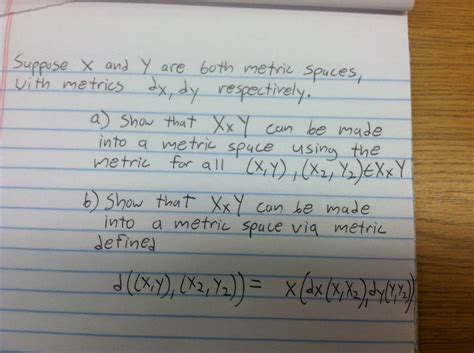 Suppose X and Y are both metric spaces,
with metrics dx, dy respectively.
a) Show that XxY can be made
into a metric space using the
metric for all (X,Y), (X2, Y2)∈XxY
b) Show that XxY can be made
into a metric space via metric
defined
d((X,Y), (X2, Y2)) = X(dx(X,X2), dy(Y,Y2))